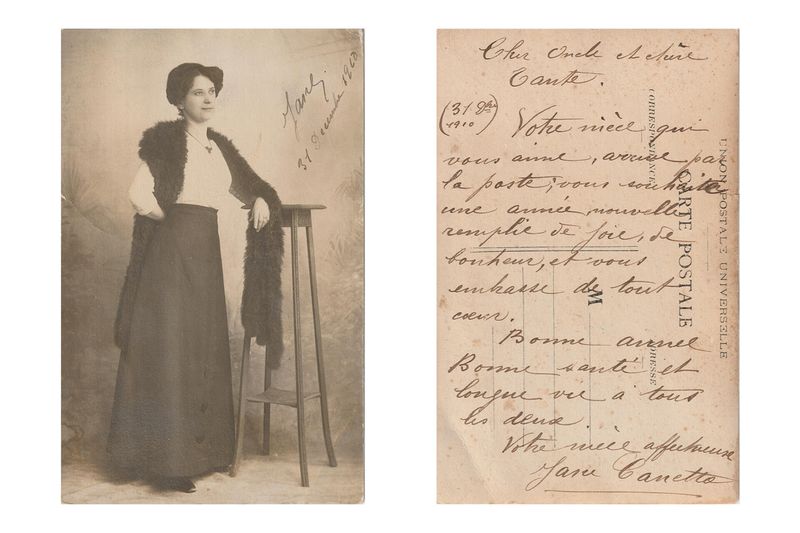 Jane
31 Decembre 1910
Cher Oncle et chère
Tante.
(31 Dbre
1910)
Votre nièce qui
vous aime, arrive par
la poste; vous souhaite
une année nouvelle
remplie de joie, de
bonheur, et vous
embrasse de tout
cœur.
Bonne année
Bonne santé et
longue vie à tous
les deux.
Votre nièce affectueuse
Jane
UNION POSTALE UNIVERSELLE
CARTE POSTALE
M
CORRESPONDENCE
ADRESSE